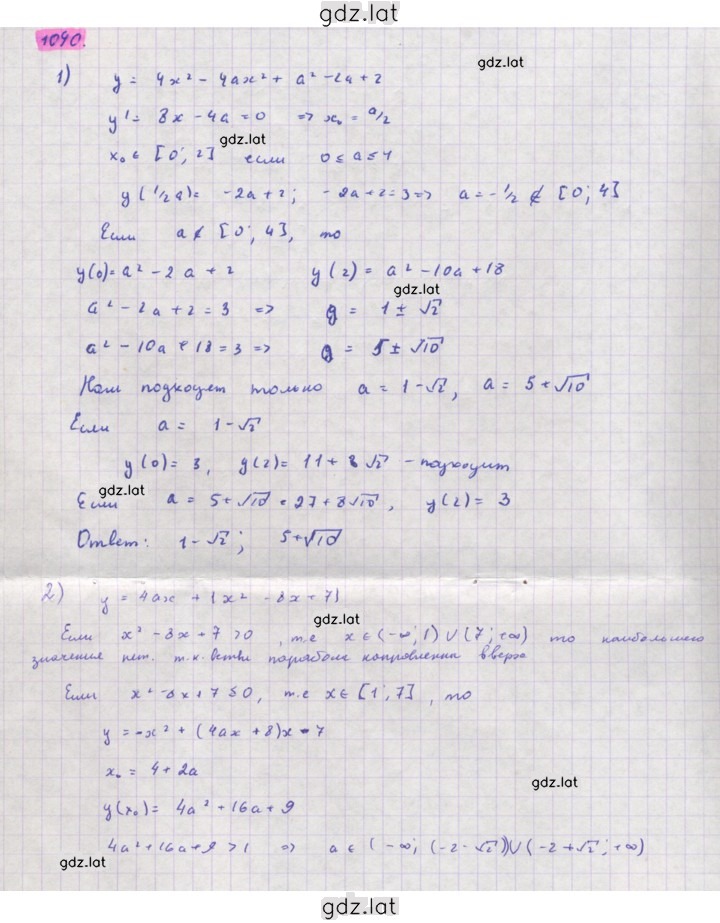 gdz.lat
1090.
gdz.lat
1) y = 4x² - 4ax² + a² - 2a + 2
y' = 8x - 4a = 0 => x₀ = a/2
gdz.lat
x₀ ∈ [0; 2] если 0 ≤ a ≤ 4
y(1/2 a) = -2a + 2; -2a + 2 = 3 => a = -1/2 ∉ [0; 4]
Если a ∉ [0; 4], то
y(0) = a² - 2a + 2 y(2) = a² - 10a + 18
gdz.lat
a² - 2a + 2 = 3 => a = 1 ± √2
a² - 10a + 18 = 3 => a = 5 ± √10
Нам подходит только a = 1 - √2, a = 5 + √10
Если a = 1 - √2
y(0) = 3, y(2) = 11 + 8√2 - подходит
gdz.lat
Если a = 5 + √10 = 27 + 8√10, y(2) = 3
Ответ: 1 - √2; 5 + √10
2) y = 4ax + |x² - 8x + 7|
gdz.lat
Если x² - 8x + 7 > 0, т.е x ∈ (-∞; 1) ∪ (7; +∞) то наибольшего
значения нет. т.к. ветви параболы направленна вверх
Если x² - 8x + 7 ≤ 0, т.е x ∈ [1; 7], то
y = -x² + (4ax + 8)x - 7
x₀ = 4 + 2a
gdz.lat
y(x₀) = 4a² + 16a + 9
4a² + 16a + 9 > 1 => a ∈ (-∞; (-2 - √2)) ∪ (-2 + √2; +∞)
gdz.lat
gdz.lat